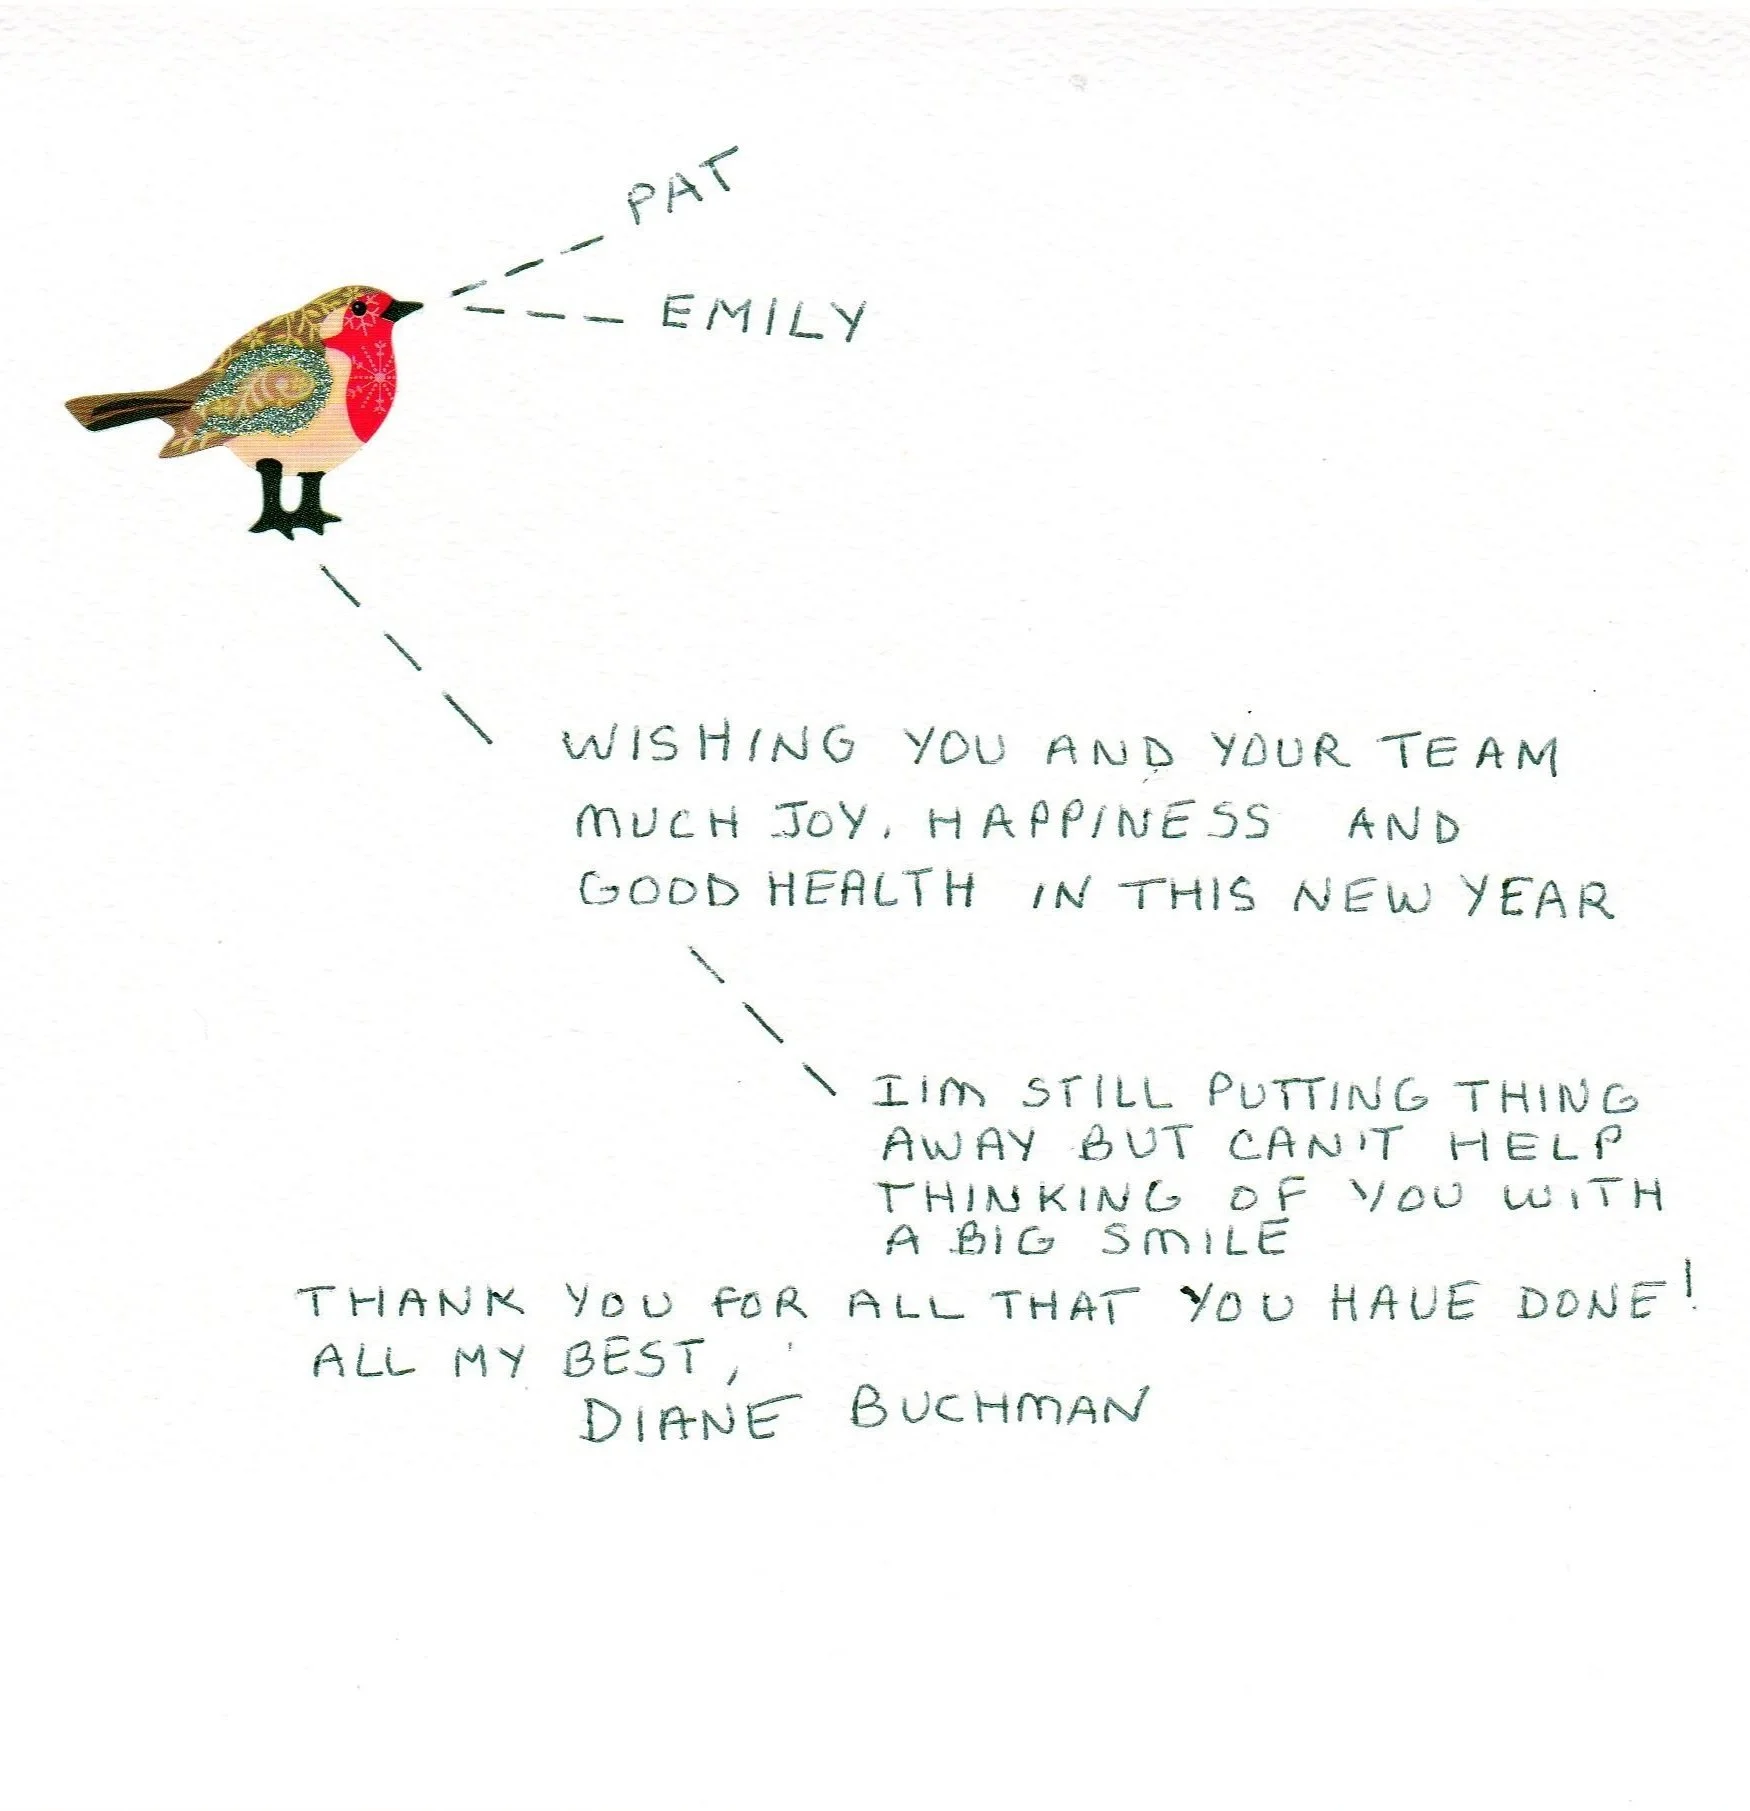 PAT
EMILY
WISHING YOU AND YOUR TEAM
MUCH JOY, HAPPINESS AND
GOOD HEALTH IN THIS NEW YEAR
I'M STILL PUTTING THING
AWAY BUT CAN'T HELP
THINKING OF YOU WITH
A BIG SMILE
THANK YOU FOR ALL THAT YOU HAVE DONE!
ALL MY BEST,
DIANE BUCHMAN